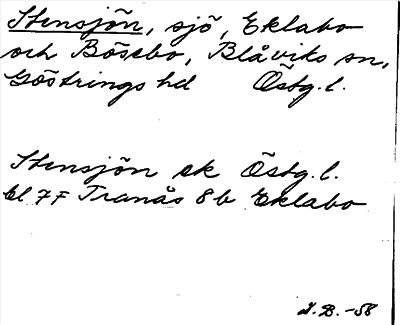 Stensjön, sjö, Eklabo
och Bösebo, Blåviks sn,
Göstrings hd Östg.l.
Stensjön ek Östg.l.
bl 7F Tranås 8b Eklabo
I.B.-58